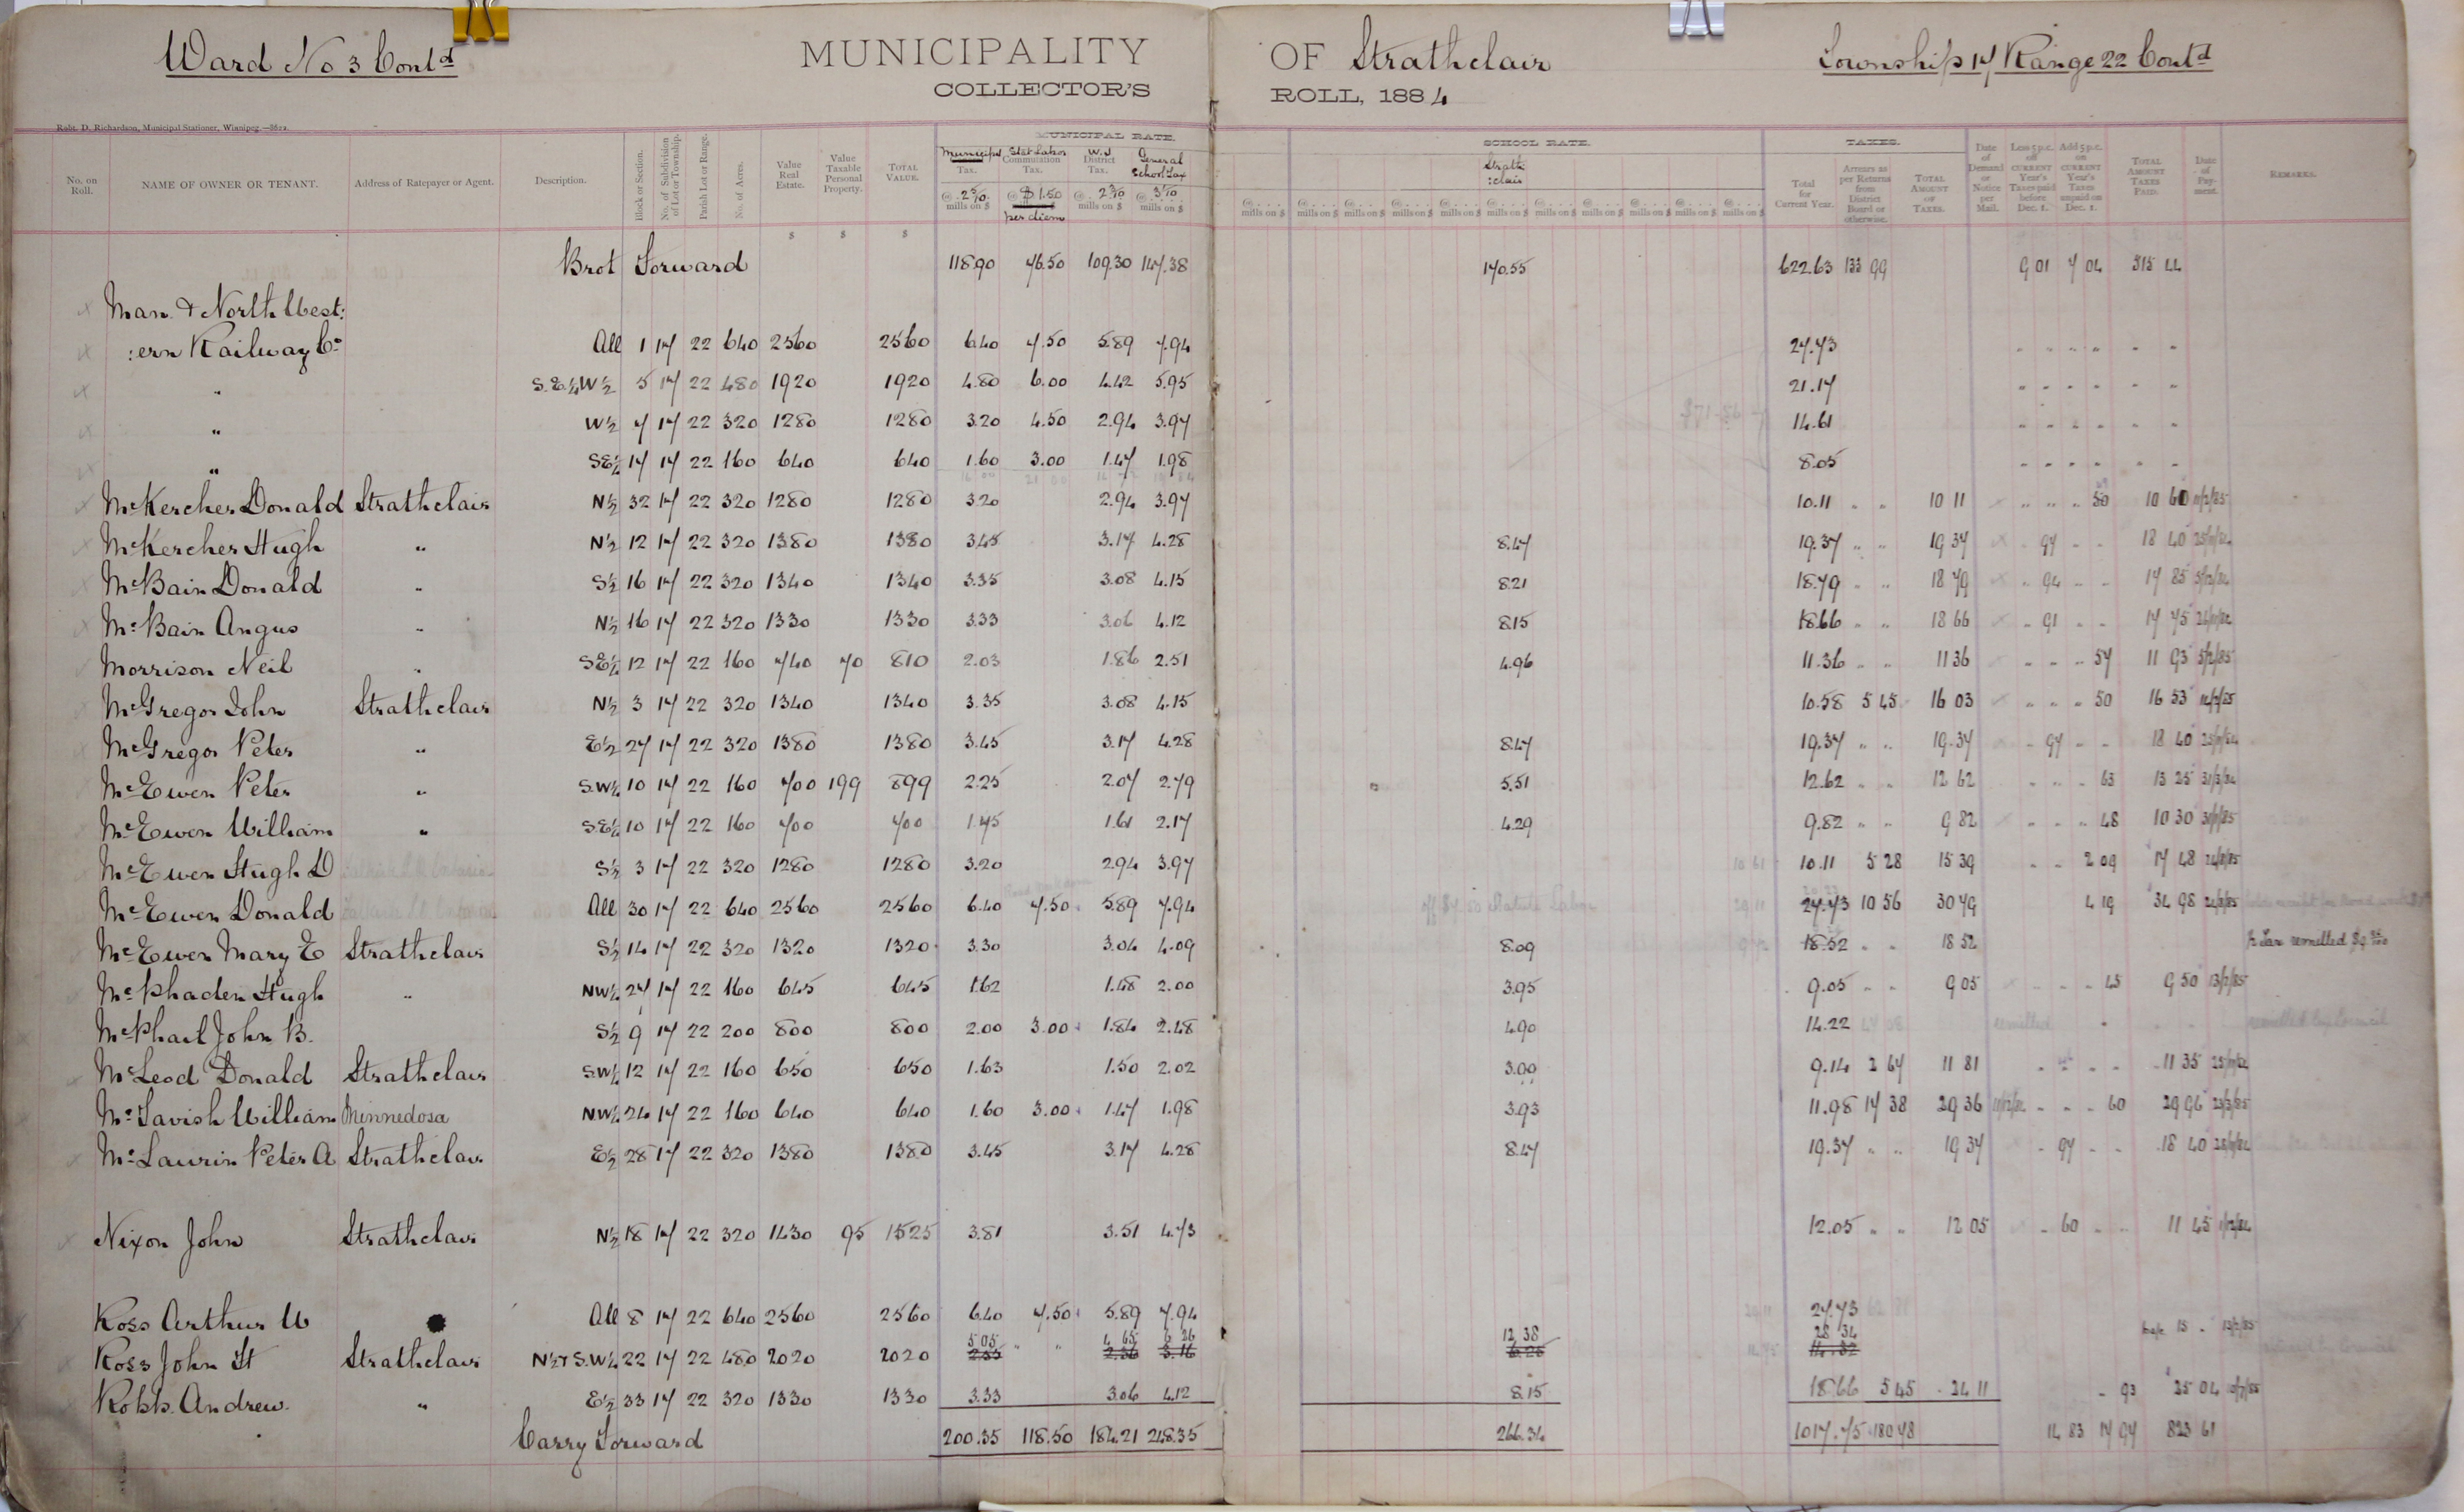 Ward No 3 Contd
MUNICIPALITY OF Strathclair
Township 17 Range 22 Contd
COLLECTOR'S ROLL, 1884
Robt. D. Richardson, Municipal Stationer, Winnipeg.
MUNICIPAL RATE. SCHOOL RATE. TAXES.
No. on Roll. NAME OF OWNER OR TENANT. Address of Ratepayer or Agent. Description. Block or Section. No. of Subdivision of Lot or Township. Parish Lot or Range. No. of Acres. Value Real Estate. Value Taxable Personal Property. TOTAL VALUE. Municipal Tax. Stat Labor Commutation Tax. W. J. District Tax. General School Tax Strath :clair Total for Current Year. Arrears as per Returns from District Board or otherwise. TOTAL AMOUNT OF TAXES. Date of Demand or Notice per Mail. Less 5 p.c. off CURRENT Year's Taxes paid before Dec. 1. Add 5 p.c. on CURRENT Year's Taxes unpaid on Dec. 1. TOTAL AMOUNT TAXES PAID. Date of Payment. REMARKS.
@ 2 5/10 mills on $ @ $1.50 per diem @ 2 3/10 mills on $ @ 3 1/10 mills on $
$ $ $
Brot Forward 118.90 76.50 109.30 147.38 170.55 622.63 133 99 9 01 7 04 515 44
Man. & North West:
:ern Railway Co All 1 17 22 640 2560 2560 6.40 7.50 5.89 7.94 27.73
" S.E.¼ W½ 5 17 22 480 1920 1920 4.80 6.00 4.42 5.95 21.17
" W½ 7 17 22 320 1280 1280 3.20 4.50 2.94 3.97 14.61
" SE¼ 17 17 22 160 640 640 1.60 3.00 1.47 1.98 8.05
McKercher Donald Strathclair N½ 32 17 22 320 1280 1280 3.20 2.94 3.97 10.11 " " 10 11 50 10 60 11/2/85
McKercher Hugh " N½ 12 17 22 320 1380 1380 3.45 3.17 4.28 8.47 19.37 " " 19 37 97 18 40 25/11/84
McBain Donald " S½ 16 17 22 320 1340 1340 3.35 3.08 4.15 8.21 18.79 " " 18 79 94 17 85 5/12/84
McBain Angus " N½ 16 17 22 320 1330 1330 3.33 3.06 4.12 8.15 18.66 " " 18 66 91 17 75 26/11/84
Morrison Neil " SE¼ 12 17 22 160 740 70 810 2.03 1.86 2.51 4.96 11.36 " " 11 36 57 11 93 5/2/85
McGregor John Strathclair N½ 3 17 22 320 1340 1340 3.35 3.08 4.15 10.58 5 45 16 03 50 16 53 14/2/85
McGregor Peter " E½ 27 17 22 320 1380 1380 3.45 3.17 4.28 8.47 19.37 " " 19.37 97 18 40 25/11/84
McEwen Peter " S.W¼ 10 17 22 160 700 199 899 2.25 2.07 2.79 5.51 12.62 " " 12 62 63 13 25 31/3/84
McEwen William " S.E¼ 10 17 22 160 700 700 1.75 1.61 2.17 4.29 9.82 " " 9 82 48 10 30
McEwen Hugh D S½ 3 17 22 320 1280 1280 3.20 2.94 3.97 10.11 5 28 15 39 2 09 17 48
McEwen Donald All 30 17 22 640 2560 2560 6.40 7.50 5.89 7.94 27.73 10 56 30 79 4 19 34 98
McEwen Mary E Strathclair S½ 14 17 22 320 1320 1320 3.30 3.04 4.09 8.09 18.52 " " 18 52 ½ Tax remitted
McPhaden Hugh " NW¼ 27 17 22 160 645 645 1.62 1.48 2.00 3.95 9.05 " " 9 05 45 9 50 13/2/85
McPhail John B. S½ 9 17 22 200 800 800 2.00 3.00 1.84 2.48 4.90 14.22 remitted remitted by Council
McLeod Donald Strathclair S.W¼ 12 17 22 160 650 650 1.63 1.50 2.02 3.99 9.14 2 67 11 81 11 35 25/11/84
McTavish William Minnedosa NW¼ 24 17 22 160 640 640 1.60 3.00 1.47 1.98 3.93 11.98 17 38 29 36 60 29 96 23/3/85
McLaurin Peter A Strathclair E½ 28 17 22 320 1380 1380 3.45 3.17 4.28 8.47 19.37 " " 19 37 97 18 40 25/11/84
Nixon John Strathclair N½ 18 17 22 320 1430 95 1525 3.81 3.51 4.73 12.05 " " 12 05 60 11 45 1/12/84
Ross Arthur W All 8 17 22 640 2560 2560 6.40 7.50 5.89 7.94 27.73
5 05 4 65 6 26 12 38 28 34
Ross John St Strathclair N½ & S.W¼ 22 17 22 480 2020 2020 15 13/2/85
Robb Andrew " E½ 33 17 22 320 1330 1330 3.33 3.06 4.12 8.15 18.66 5 45 24 11 93 25 04
Carry Forward 200.35 118.50 184.21 248.35 266.34 1017.75 180 78 14 83 17 97 823 61